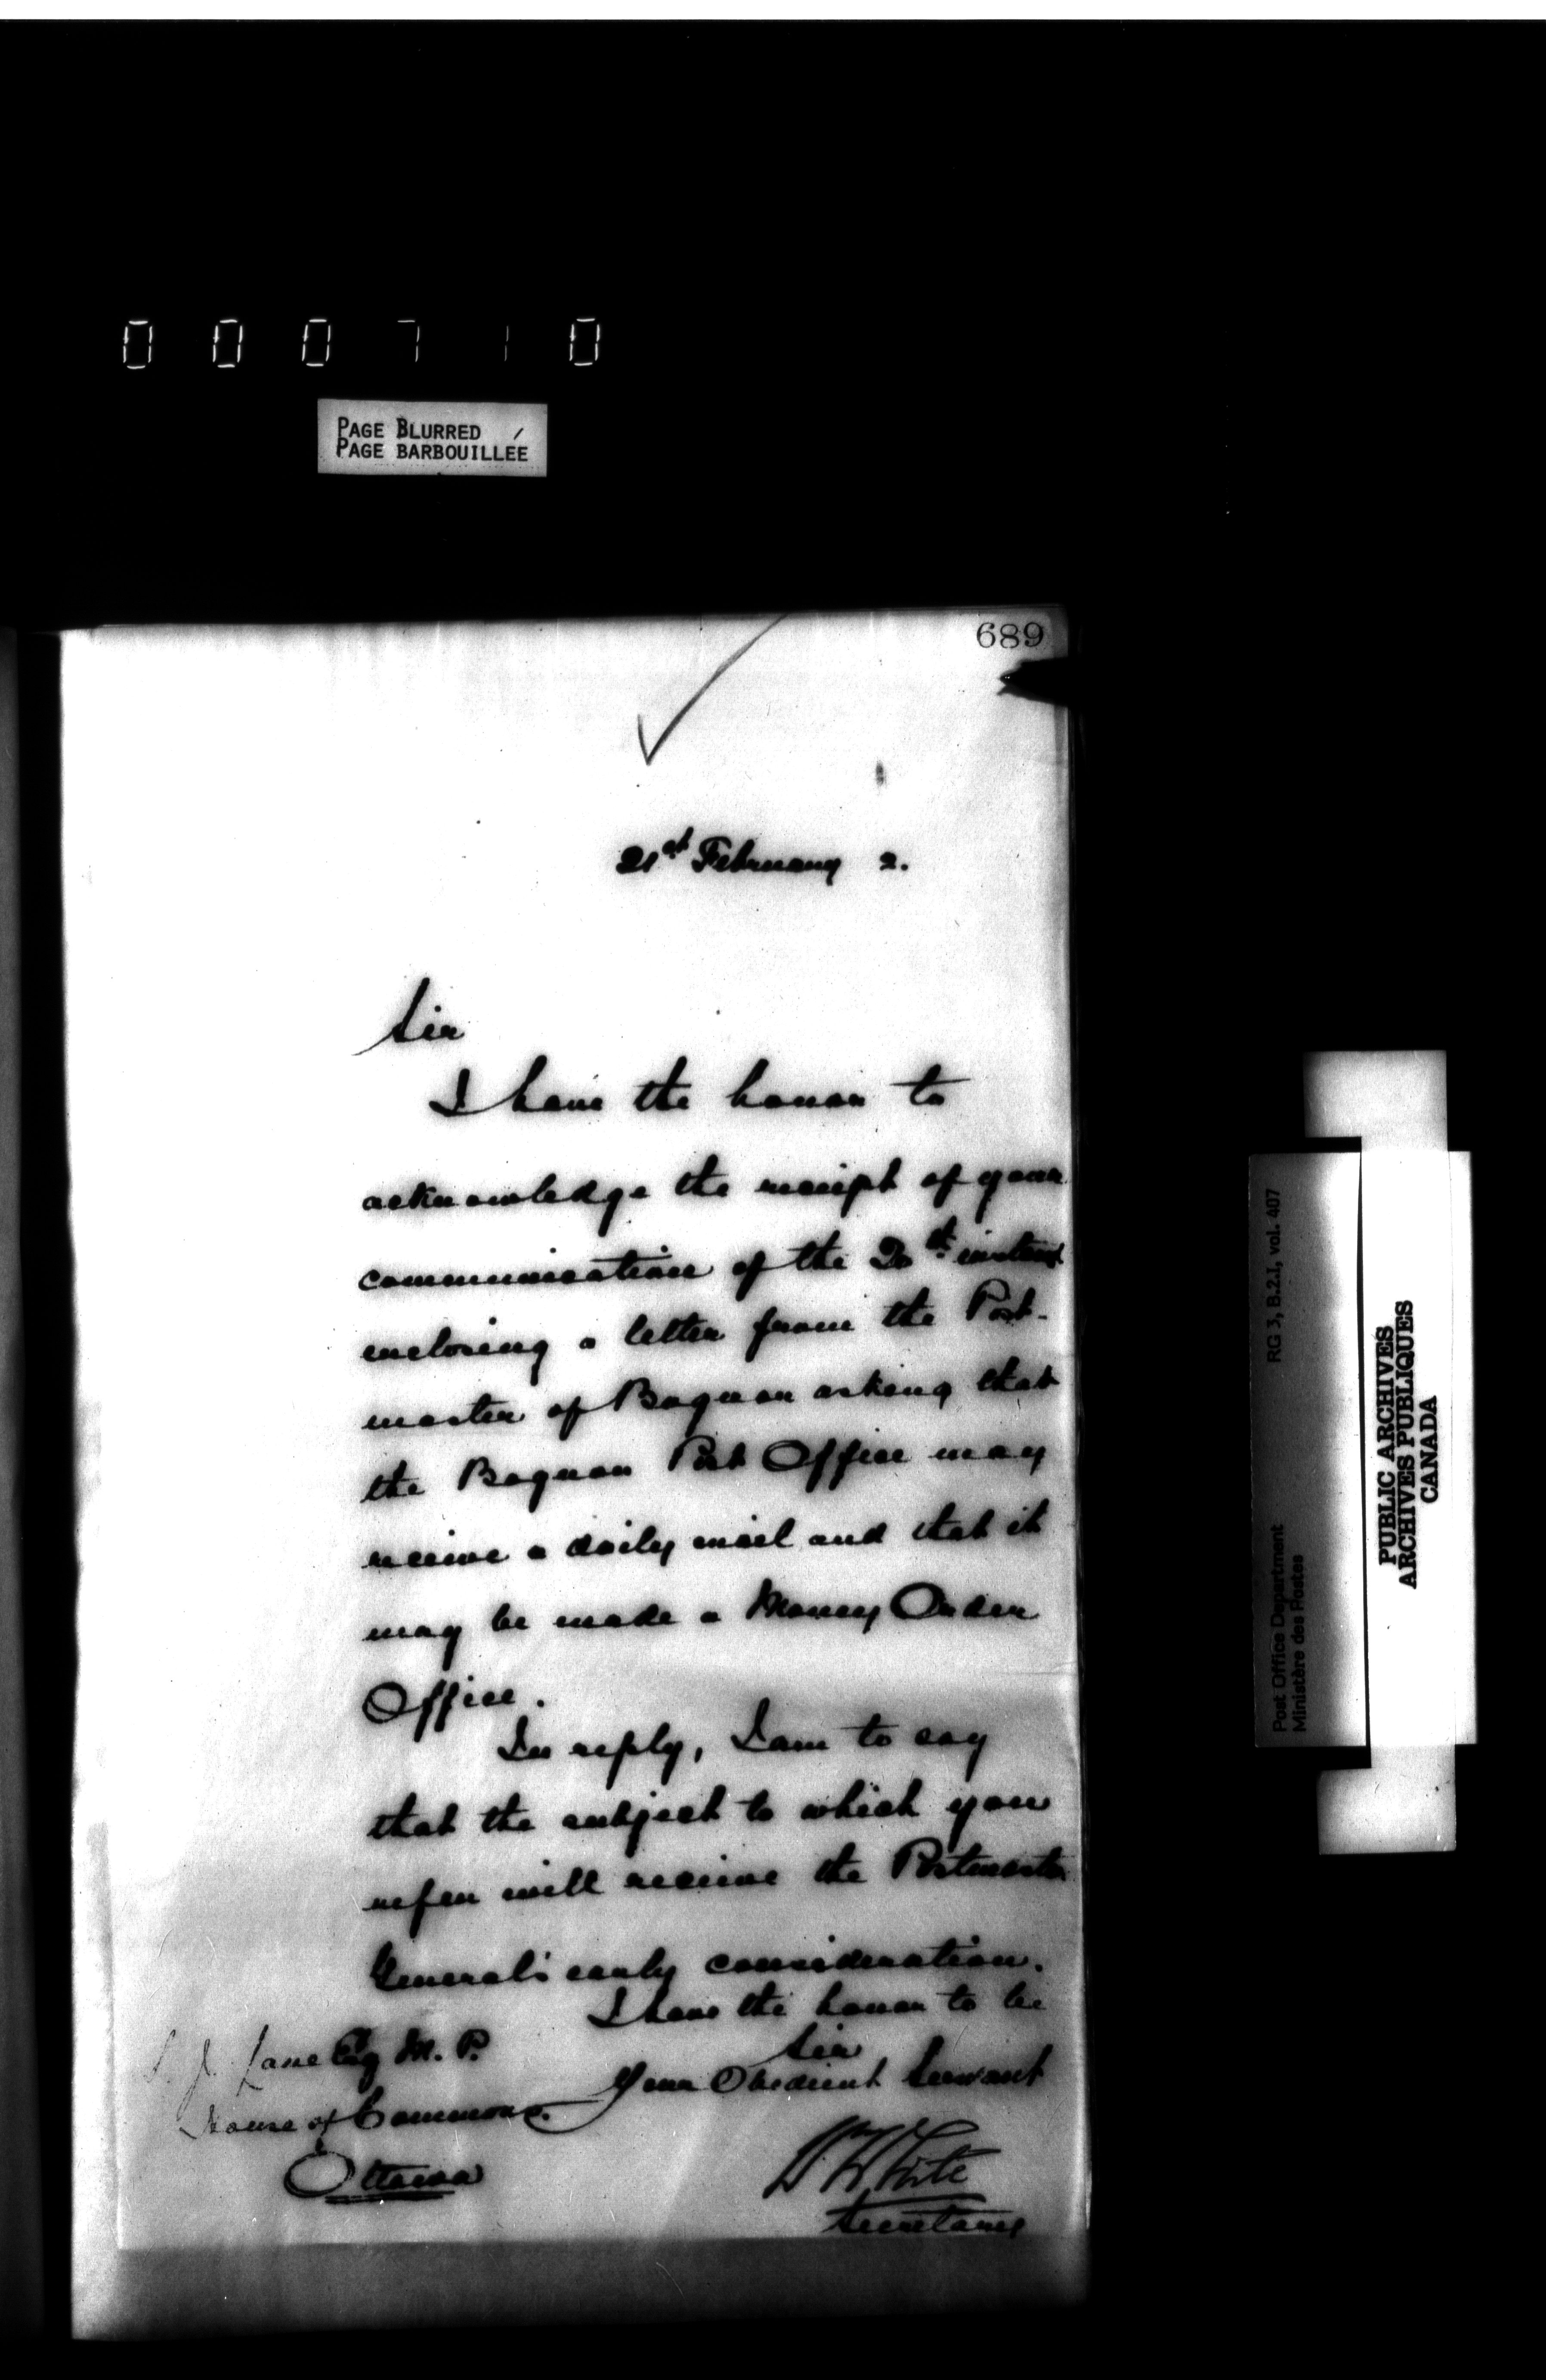 000710
PAGE BLURRED
PAGE BARBOUILLÉE
689
21st February 2.
Sir
I have the honor to
acknowledge the receipt of your
communication of the 20th instant
enclosing a letter from the Post-
master of Bognor asking that
the Bognor Post Office may
receive a daily mail and that it
may be made a Money Order
Office.
In reply, I am to say
that the subject to which you
refer will receive the Postmaster
General's early consideration.
I have the honor to be
Sir
Your Obedient Servant
Wm White
Secretary
J. Lane Esq M. P.
House of Commons.
Ottawa
Post Office Department
Ministère des Postes
RG 3, B.2.1, vol. 407
PUBLIC ARCHIVES
ARCHIVES PUBLIQUES
CANADA